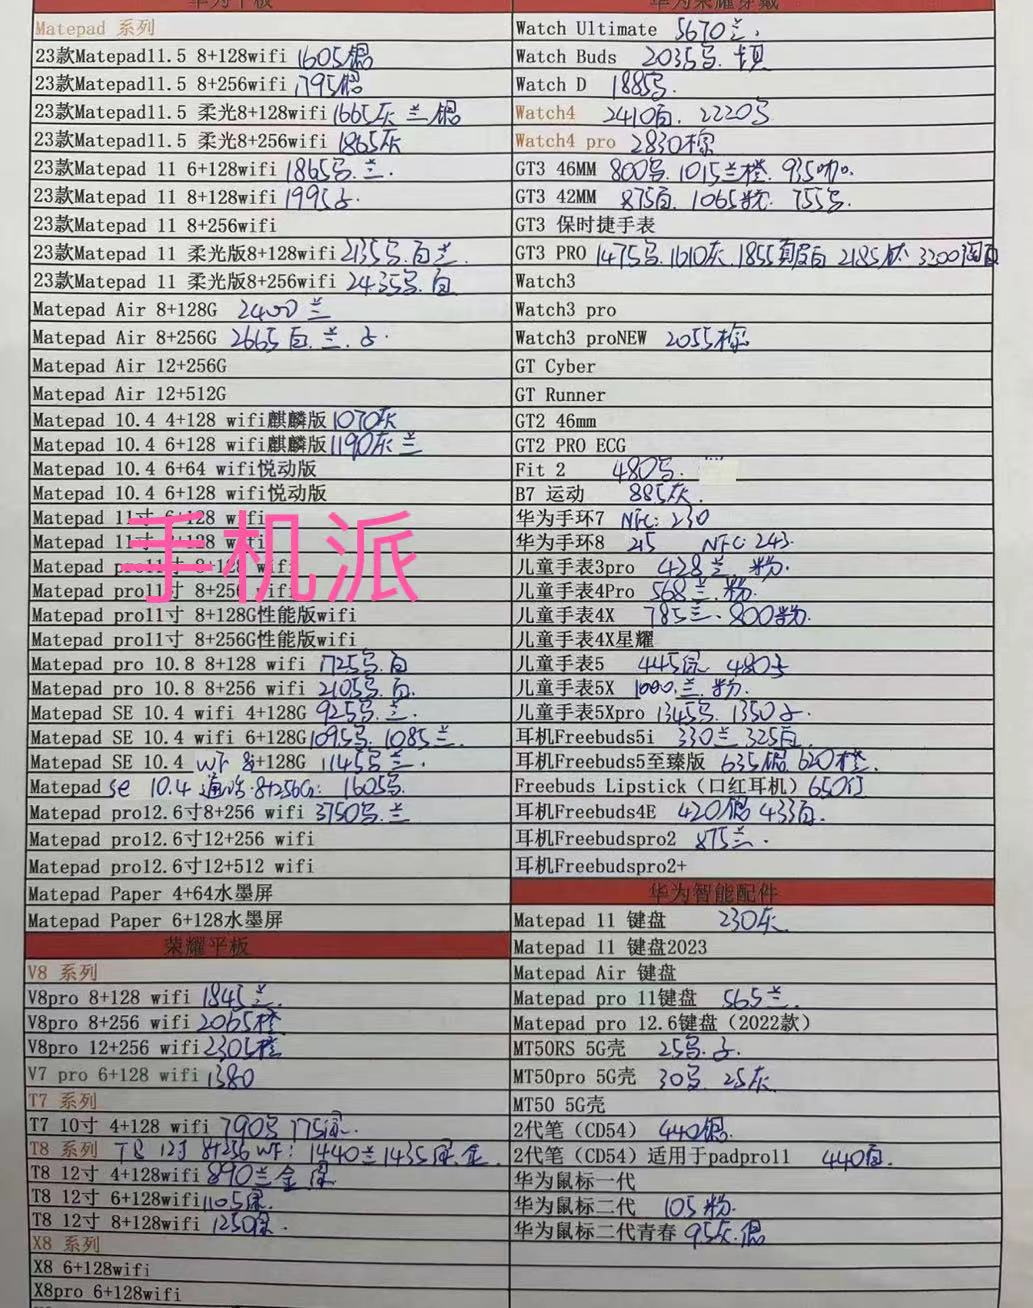 华为平板
Matepad 系列
23款Matepad11.5 8+128wifi 1605银
23款Matepad11.5 8+256wifi 1795银
23款Matepad11.5 柔光8+128wifi 1665灰 兰 银
23款Matepad11.5 柔光8+256wifi 1865灰
23款Matepad 11 6+128wifi 1865 兰.
23款Matepad 11 8+128wifi 1995
23款Matepad 11 8+256wifi
23款Matepad 11 柔光版8+128wifi 2135 白兰.
23款Matepad 11 柔光版8+256wifi 2435 白
Matepad Air 8+128G 2400 兰
Matepad Air 8+256G 2665 白.兰.
Matepad Air 12+256G
Matepad Air 12+512G
Matepad 10.4 4+128 wifi麒麟版 1070灰
Matepad 10.4 6+128 wifi麒麟版 1190灰 兰
Matepad 10.4 6+64 wifi悦动版
Matepad 10.4 6+128 wifi悦动版
Matepad 11寸 6+128 wifi
Matepad 11寸 wifi
手机派
Matepad pro11寸 8+128 wifi
Matepad pro11寸 8+256 wifi
Matepad pro11寸 8+128G性能版wifi
Matepad pro11寸 8+256G性能版wifi
Matepad pro 10.8 8+128 wifi 1725 白
Matepad pro 10.8 8+256 wifi 2105 白.
Matepad SE 10.4 wifi 4+128G 925 兰.
Matepad SE 10.4 wifi 6+128G 1095 1085兰.
Matepad SE 10.4 wif 8+128G 1145 兰.
Matepad se 10.4 通话.8+256G: 1605
Matepad pro12.6寸8+256 wifi 3750 兰
Matepad pro12.6寸12+256 wifi
Matepad pro12.6寸12+512 wifi
Matepad Paper 4+64水墨屏
Matepad Paper 6+128水墨屏
荣耀平板
V8 系列
V8pro 8+128 wifi 1845兰.
V8pro 8+256 wifi 2065橙
V8pro 12+256 wifi 2305橙
V7 pro 6+128 wifi 1380
T7 系列
T7 10寸 4+128 wifi 790 775
T8 系列 T8 12寸 8+256 wf: 1440兰 1435 金.
T8 12寸 4+128wifi 890兰金
T8 12寸 6+128wifi 1105
T8 12寸 8+128wifi 1250
X8 系列
X8 6+128wifi
X8pro 6+128wifi
华为荣耀穿戴
Watch Ultimate 5670兰.
Watch Buds 2035
Watch D 1885
Watch4 2410 2220
Watch4 pro 2830棕
GT3 46MM 800 1015兰橙. 935咖.
GT3 42MM 875白. 1065 755
GT3 保时捷手表
GT3 PRO 1475 1610灰 1855真皮白 2185钛 3200陶白
Watch3
Watch3 pro
Watch3 proNEW 2055棕
GT Cyber
GT Runner
GT2 46mm
GT2 PRO ECG
Fit 2 480
B7 运动 885灰.
华为手环7 NFC: 230
华为手环8 215 NFC 243.
儿童手表3pro 428兰 粉.
儿童手表4Pro 568兰.粉.
儿童手表4X 785兰. 800粉.
儿童手表4X星耀
儿童手表5 445 480
儿童手表5X 1000.兰.粉.
儿童手表5Xpro 1345 1350
耳机Freebuds5i 330兰 325白
耳机Freebuds5至臻版 635银 620橙.
Freebuds Lipstick（口红耳机）650红
耳机Freebuds4E 420银 433白.
耳机Freebudspro2 875兰.
耳机Freebudspro2+
华为智能配件
Matepad 11 键盘 230灰
Matepad 11 键盘2023
Matepad Air 键盘
Matepad pro 11键盘 565兰.
Matepad pro 12.6键盘（2022款）
MT50RS 5G壳 25
MT50pro 5G壳 30 25灰
MT50 5G壳
2代笔（CD54） 440银.
2代笔（CD54）适用于padpro11 440白.
华为鼠标一代
华为鼠标二代 105粉.
华为鼠标二代青春 95灰.银